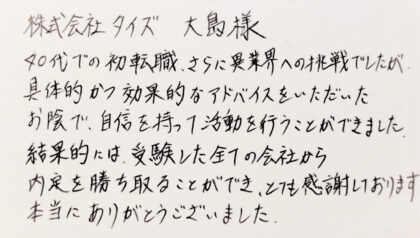 株式会社タイズ 大島様
40代での初転職、さらに異業界への挑戦でしたが、
具体的かつ効果的なアドバイスをいただいた
お陰で、自信を持って活動を行うことができました。
結果的には、受験した全ての会社から
内定を勝ち取ることができ、とても感謝しております
本当にありがとうございました.